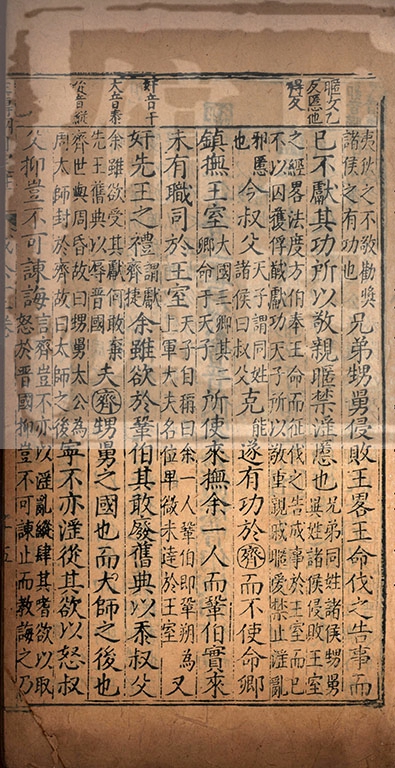 暱女乙
反慝他
得反
奸音干
大音泰
從音縱
夷狄之不敬勸獎
諸侯之有功也
兄弟甥舅侵敗王畧王命伐之告事而
已不獻其功所以敬親暱禁淫慝也
兄弟同姓諸侯甥舅
異姓諸侯侵敗王室
之經畧法度方伯奉王命而征伐之告成事於王室而已
不以囚獲俘馘獻功天子所以敬重親戚暱愛禁止淫亂
邪慝
也
今叔父
天子謂同姓
諸侯曰叔父
克
能
遂有功於齊而不使命卿
鎮撫王室
大國三卿其二
卿命于天子
所使來撫余一人而鞏伯實來
未有職司於王室
天子自稱曰余一人鞏伯即鞏朔為
上軍大夫名位卑微未達於王室
又
奸先王之禮
謂獻
齊捷
余雖欲於鞏伯其敢廢舊典以忝叔父
余雖欲受其獻何敢棄
先王舊典以辱晉國
夫齊甥舅之國也而大師之後也
齊世與周昏故曰甥舅太公為
周太師封於齊故曰太師之後
寧不亦淫從其欲以怒叔
父抑豈不可諫誨
言齊豈不亦以淫亂縱肆其嗜欲以取
怒於晉國抑豈不可諫止而教誨之乃